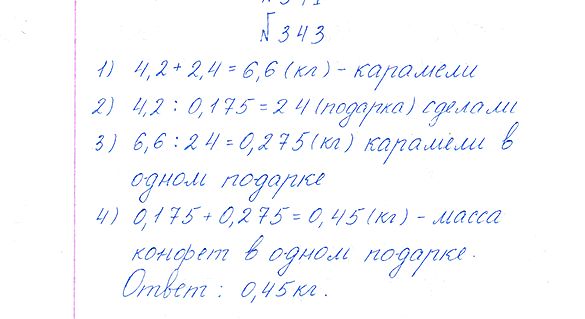 №343
1) 4,2 + 2,4 = 6,6 (кг) - карамели
2) 4,2 : 0,175 = 24 (подарка) сделали
3) 6,6 : 24 = 0,275 (кг) карамели в
одном подарке
4) 0,175 + 0,275 = 0,45 (кг) - масса
конфет в одном подарке.
Ответ: 0,45кг.